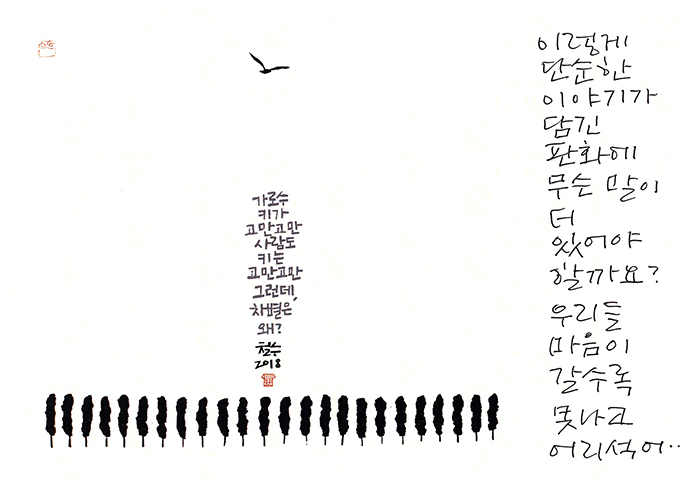 가로수
키가
고만고만
사람도
키는
고만고만
그런데,
차별은
왜?
철수
2018
이렇게
단순한
이야기가
담긴
판화에
무슨 말이
더
있어야
할까요?
우리들
마음이
갈수록
못나고
어리석어..